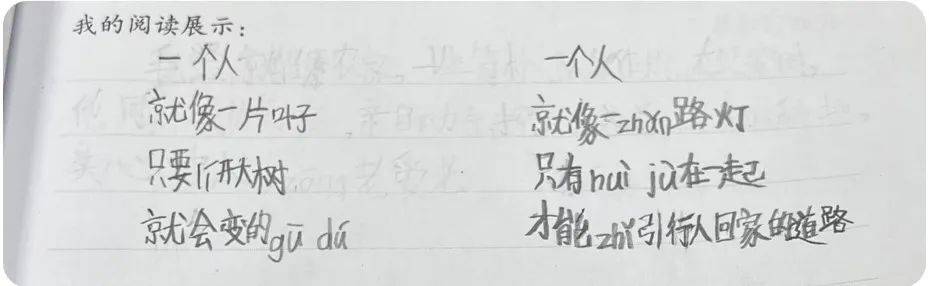 我的阅读展示：
一个人
就像一片叶子
只要lí开大树
就会变的gū dú
一个人
就像一zhǎn路灯
只有huì jù在一起
才能zhǐ引行人回家的道路